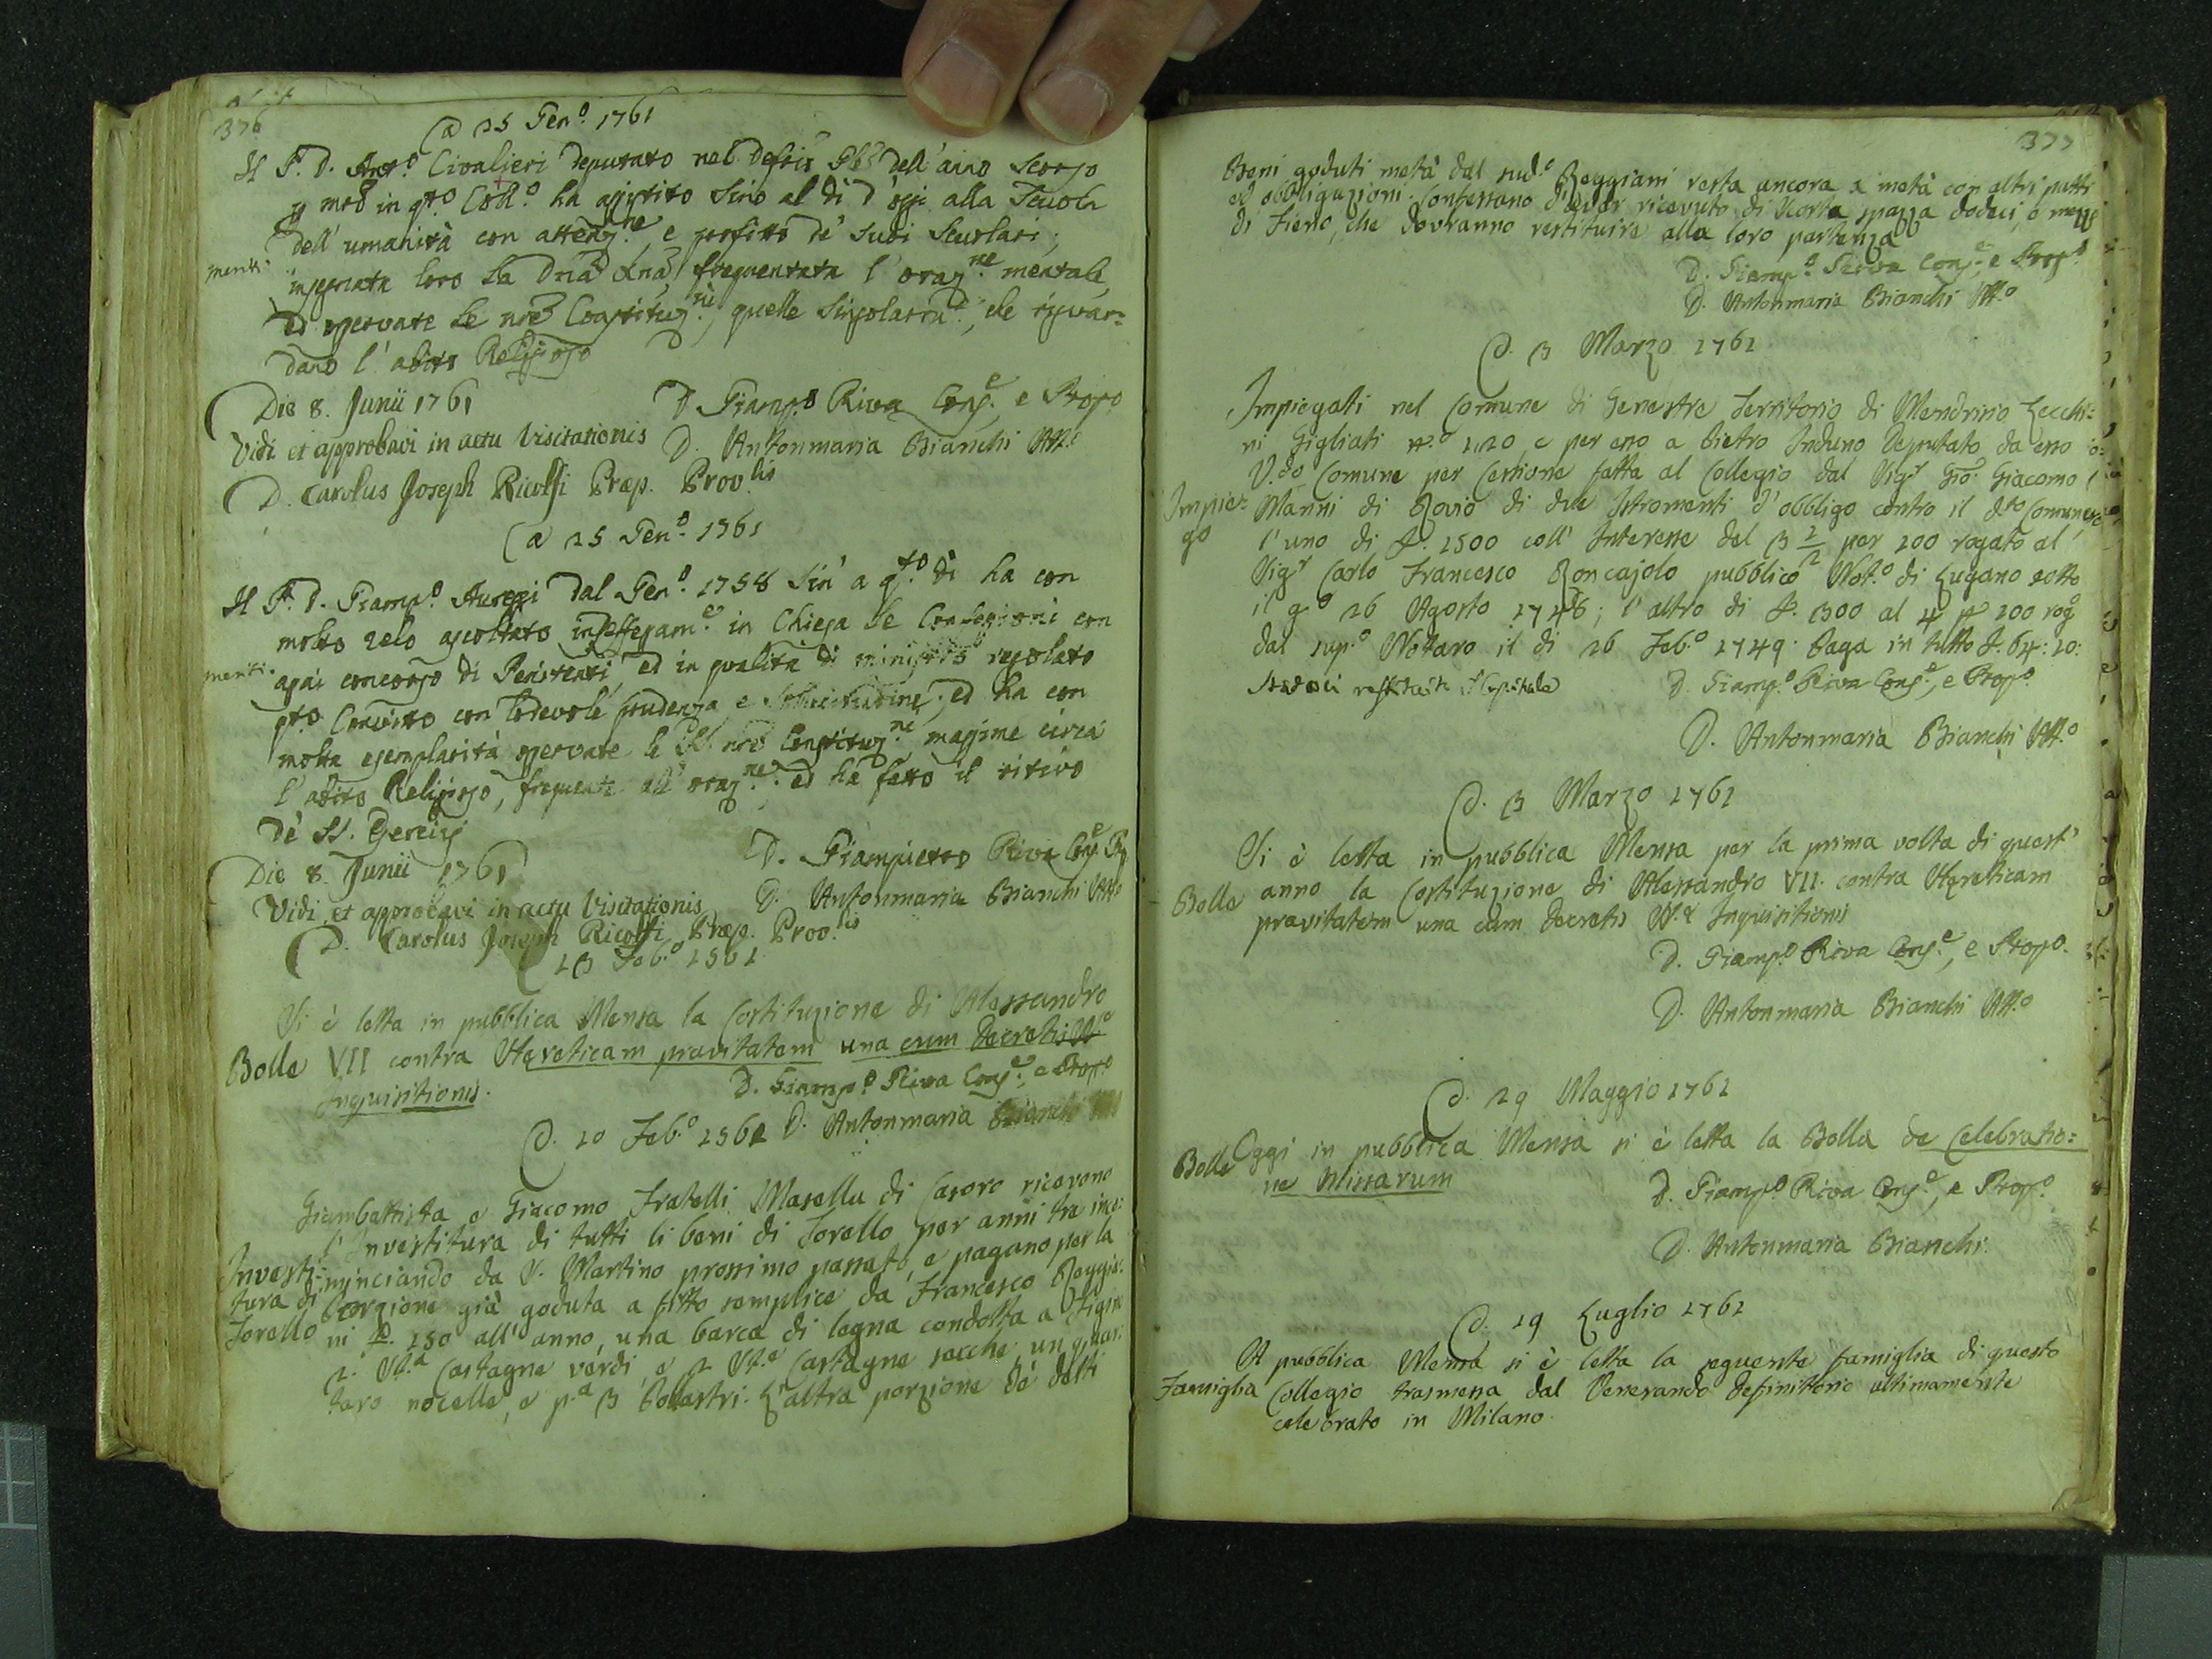 376
a 25 Gen.º 1761
Il P. D. Ant.º Civalieri deputato nel dell'anno scorso
in q.to Coll.º ha assistito sino al dì d'oggi alla Scuola
dell'umanità con attenz.ne, e profitto de' suoi Scuolari;
meriti insegnata loro la Dnã Xnã, frequentata l'oraz.ne mentale,
ed osservate le nrẽ Constituz.ni, quelle singolarm.e, che riguar=
dano l'abito Religioso
Die 8. Junii 1761
D Giamp.º Riva Cons.e e Prop.º
Vidi et approbavi in actu Visitationis
D. Antonmaria Bianchi Att.º
D. Carolus Joseph Ricolfi Præp. Prov.lis
a 25 Gen.º 1761
Il P. D. Giamp.º Auregi dal Gen.º 1758 sin' a q.to dì ha con
molto zelo ascoltato indefessam.e in Chiesa le Confessioni con
meriti. assai concorso di Penitenti, ed in qualità di ministro regolato
q.to Convitto con lodevole prudenza, e sollecitudine; ed ha con
molta esemplarità osservate le SS. nrẽ Constituz.ni massime circa
l'abito Religioso, frequente all'oraz.ne: ed ha fatto il ritiro
de' SS. Esercizj
Die 8. Junii 1761
D. Giampietro Riva Cons.e
Vidi et approbavi in actu Visitationis
D. Antonmaria Bianchi Att.º
D. Carolus Joseph Ricolfi Præp. Prov.lis
13 Feb.º 1761
Si è letta in pubblica Mensa la Costituzione di Alessandro
Bolle VII contra Hæreticam pravitatem una cum Decretis
Inquisitionis.
D. Giamp.º Riva Cons.e, e Prop.º
D. Antonmaria Bianchi
a. 20 Feb.º 1761
Giambattista e Giacomo Fratelli Masella di Casoro ricevono
l'Investitura di tutti li beni di Torello per anni tre inco=
Investi= minciando da S. Martino prossimo passato, e pagano per la
tura di porzione già goduta a fitto semplice da Francesco Reggia=
Torello ni £. 150 all'anno, una barca di legna condotta a Figin
2. St.a Castagne verdi, e 2 St.a Castagne secche, un quar=
taro nocelle, e p.a 3 Pollastri. L'altra porzione de' detti
377
Beni goduti metà dal sud.º Reggiani resta ancora a metà con altri patti
ed obbligazioni. Confessano d'aver ricevuto di Scorta spazza dodeci, e mezza
di Fieno, che dovranno restituire alla loro partenza
D. Giamp.º Riva Cons.e, e Prop.º
D. Antonmaria Bianchi Att.º
a. 3 Marzo 1761
Impiegati nel Comune di Genestre Territorio di Mendrisio Zecchi=
ni Gigliati n.º 120 e per esso a Pietro Induno Deputato da esso
Comune per Cessione fatta al Collegio dal Sig.r Gio: Giacomo
Impie= Manni di Rovio di due Istromenti d'obbligo contro il d.to Comune,
go l'uno di £. 1500 coll'Interesse del 3 1/2 per 100 rogato al
Sig.r Carlo Francesco Roncajolo pubblico Not.º di Lugano sotto
il g.º 26 Agosto 1746; l'altro di £. 300 al 4 p 100 rog.º
dal sup.º Notaro il di 26 Feb.º 1749. Paga in tutto £. 64: 10:
Statoci restituito il Capitale
D. Giamp.º Riva Cons.e, e Prop.º
D. Antonmaria Bianchi Att.º
a. 3 Marzo 1761
Si è letta in pubblica Mensa per la prima volta di quest'
Bolle anno la Costituzione di Alessandro VII. contra Hæreticam
pravitatem una cum Decretis S.æ Inquisitionis
D. Giamp.º Riva Cons.e, e Prop.º
D. Antonmaria Bianchi Att.º
a. 29 Maggio 1761
Bolle Oggi in pubblica Mensa si è letta la Bolla de Celebratio=
ne Missarum
D. Giamp.º Riva Cons.e, e Prop.º
D. Antonmaria Bianchi.
a. 19 Luglio 1761
A pubblica Mensa si è letta la seguente famiglia di questo
Famiglia Collegio trasmessa dal Venerando Definittorio ultimamente
celebrato in Milano.